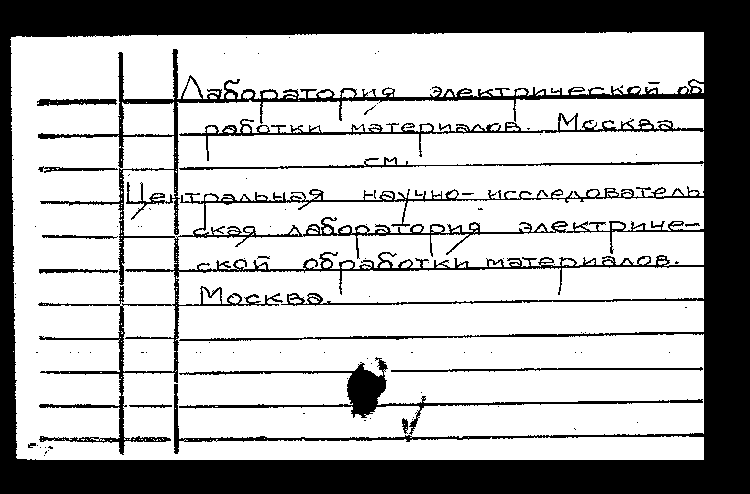 Лаборатория электрической об
работки материалов. Москва
см.
Центральная научно-исследователь
ская лаборатория электриче-
ской обработки материалов.
Москва.